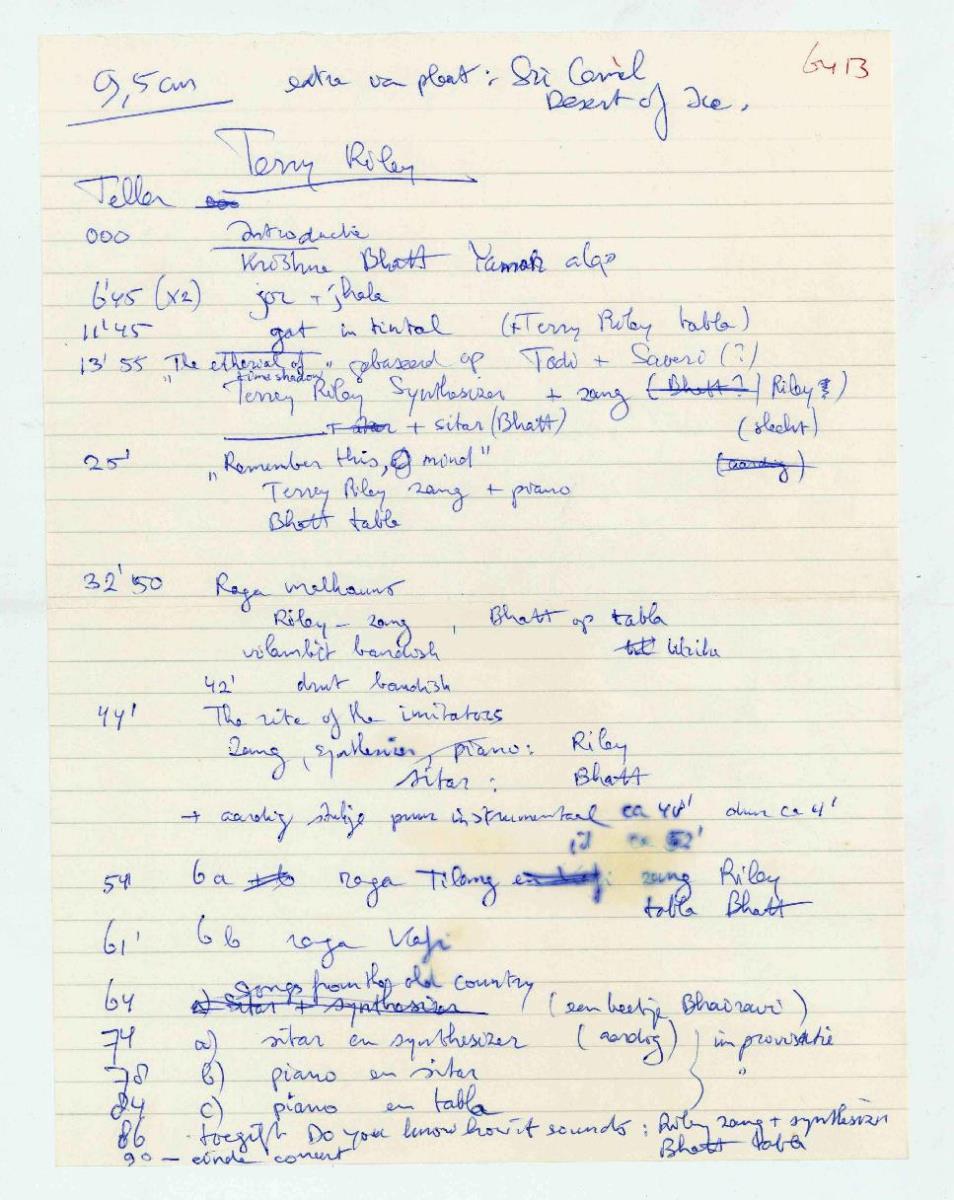 9,5 cm extra van plaat: Sri Camel 64 B
Desert of Ice.
Terry Riley
Teller
000 Introductie
Krishna Bhatt Yaman alap
6'45 (x2) jor + jhala
11'45 gat in tintal (+ Terry Riley tabla)
13'55 "The etherial of time shadow" gebaseerd op Todi + Saveri (?)
Terry Riley Synthesizer + zang (Bhatt? / Riley?)
+ sitar (Bhatt) (slecht)
25' "Remember this, O mind" (aardig)
Terry Riley zang + piano
Bhatt tabla
32'50 Raga malkauns
Riley - zang, Bhatt op tabla
vilambit bandish
42' drut bandish
44' The rite of the imitators
Zang, synthesizer, piano: Riley
sitar: Bhatt
+ aardig stukje puur instrumentaal ca 48' duur ca 4'
ca 52'
54 6a raga Tilang zang Riley
tabla Bhatt
61' 6b raga Kafi
64 Songs from the old country
a) sitar + synthesizer (een beetje Bhairavi)
74 a) sitar en synthesizer (aardig) improvisatie
78 b) piano en sitar "
84 c) piano en tabla
86 toegift Do you know how it sounds: Riley zang + synthesizer
90 - einde concert Bhatt tabla